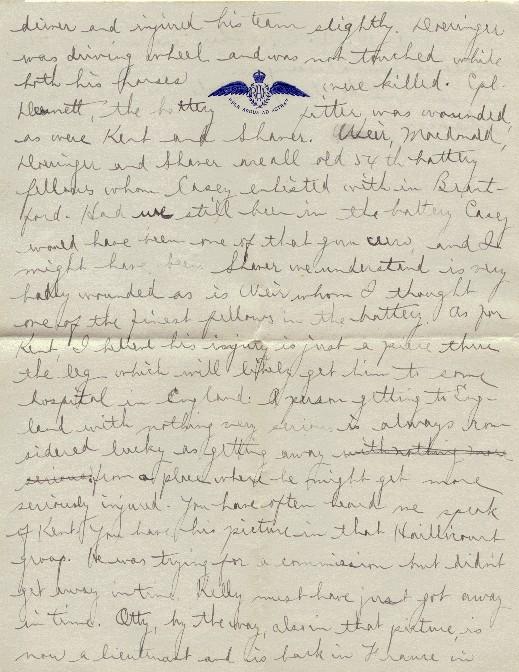 driver and injured his team slightly. Doeringer
was driving wheel and was not touched while
both his horses were killed. Cpl.
the battery fitter was wounded,
as were Kent and Shaver. Weir, Macdonald,
Doeringer and Shaver are all old 54th battery
fellows whom Casey enlisted with in Brant-
ford. Had we still been in the battery Casey
would have been one of that gun crew, and I
might have been Shaver we understand is very
badly wounded as is Weir whom I thought
one of the finest fellows in the battery. As for
Kent, I believe his injury is just a piece thru
the leg which will likely get him to some
hospital in England. A person getting to Eng-
land with nothing very serious is always con-
sidered lucky as getting away with nothing more
serious from a place where he might get more
seriously injured. You have often heard me speak
of Kent. You have his picture in that Haillicourt
group. He was trying for a commission but didn't
get away in time. Kelly must have just got away
in time. Otty, by the way, also in that picture, is
now a lieutenant and is back in France in